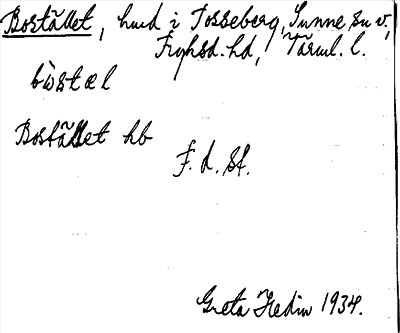 Bostället, hmd i Fosseberg, Sunne sn v,
Fryksd. hd, Värml. l.
bòstæl
Bostället hb
F. d. st.
Greta Hedin 1934.